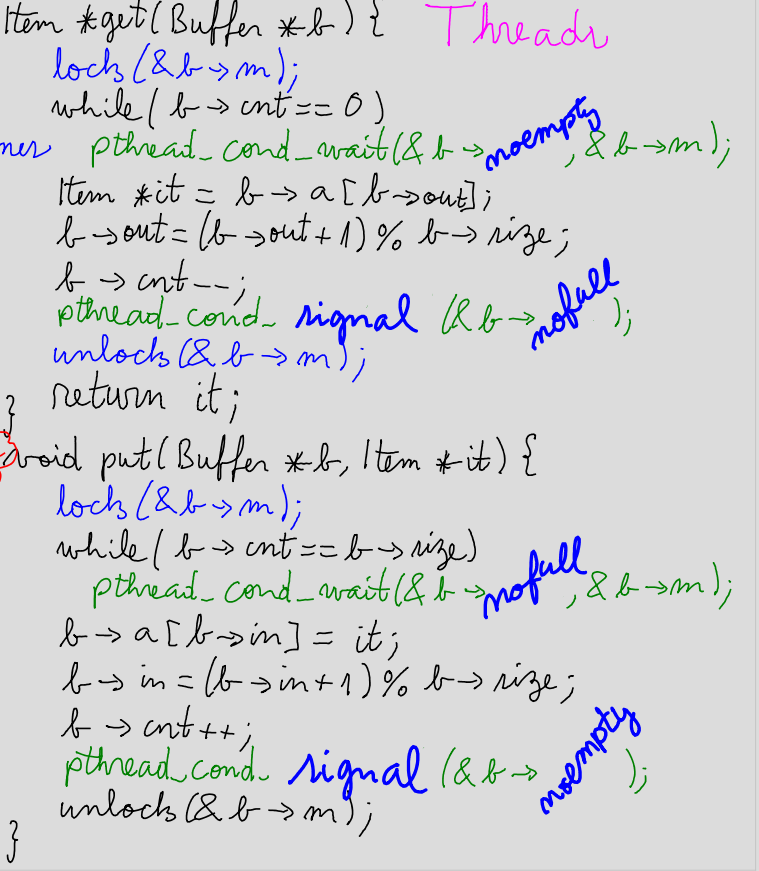 Item *get(Buffer *b) { Threads
lock(&b→m);
while(b→cnt==0)
pthread_cond_wait(&b→noempty, &b→m);
Item *it = b→a[b→out];
b→out=(b→out+1)% b→size;
b→cnt--;
pthread_cond_signal(&b→nofull);
unlock(&b→m);
return it;
}
void put(Buffer *b, Item *it) {
lock(&b→m);
while(b→cnt==b→size)
pthread_cond_wait(&b→nofull, &b→m);
b→a[b→in]=it;
b→in=(b→in+1)% b→size;
b→cnt++;
pthread_cond_signal(&b→noempty);
unlock(&b→m);
}